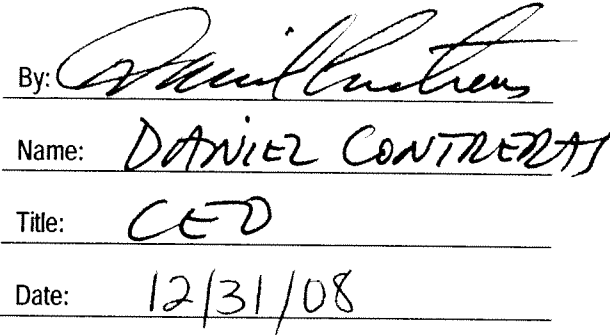 By: Daniel Contreras
Name: DANIEL CONTRERAS
Title: CEO
Date: 12/31/08